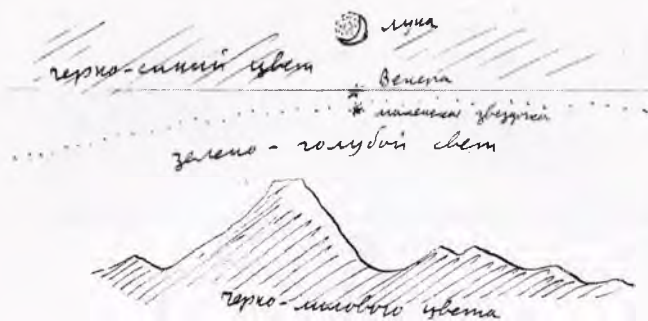 луна
черно-синий цвет
Венера
маленькая звездочка
зелено-голубой свет
черно-лилового цвета